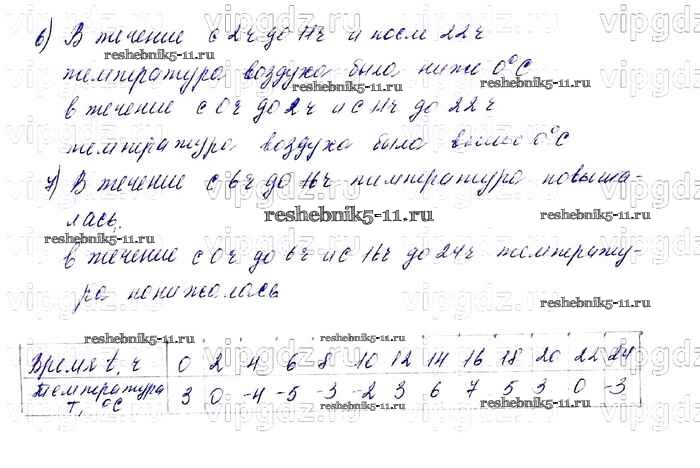 6) В течение с 2ч до 11ч и после 22ч
температура воздуха была ниже 0°C
в течение с 0ч до 2ч и с 11ч до 22ч
температура воздуха была выше 0°C
7) В течение с 6ч до 16ч температура повыша-
лась,
в течение с 0ч до 6ч и с 16ч до 24ч температу-
ра понижалась
Время t, ч 0 2 4 6 8 10 12 14 16 18 20 22 24
Температура T, °C 3 0 -4 -5 -3 -2 3 6 7 5 3 0 -3
reshebnik5-11.ru
vipgdz.ru